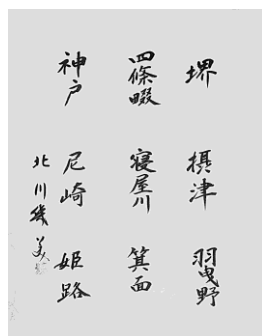 堺
摂津
羽曳野
四條畷
寝屋川
箕面
神戸
尼崎
姫路
北川